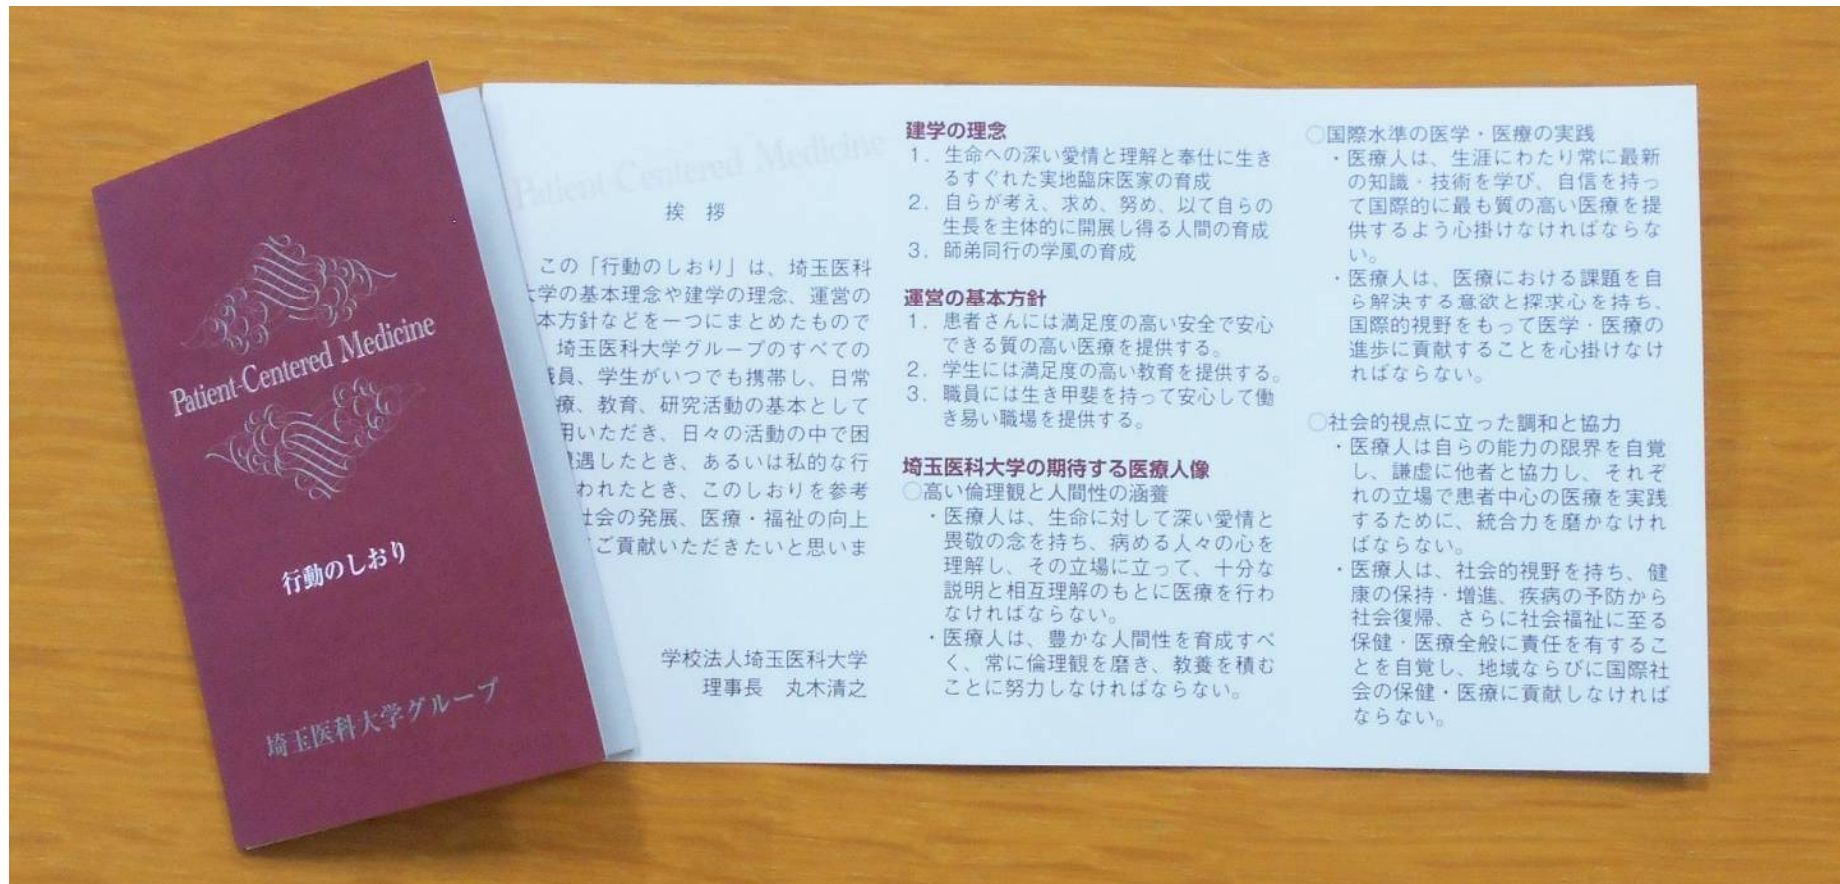 Patient-Centered Medicine
行動のしおり
埼玉医科大学グループ
Patient-Centered Medicine
挨 拶
この「行動のしおり」は、埼玉医科
学の基本理念や建学の理念、運営の
本方針などを一つにまとめたもので
埼玉医科大学グループのすべての
員、学生がいつでも携帯し、日常
療、教育、研究活動の基本として
用いただき、日々の活動の中で困
遇したとき、あるいは私的な行
われたとき、このしおりを参考
社会の発展、医療・福祉の向上
ご貢献いただきたいと思いま
学校法人埼玉医科大学
理事長 丸木清之
建学の理念
1. 生命への深い愛情と理解と奉仕に生き
るすぐれた実地臨床医家の育成
2. 自らが考え、求め、努め、以て自らの
生長を主体的に開展し得る人間の育成
3. 師弟同行の学風の育成
運営の基本方針
1. 患者さんには満足度の高い安全で安心
できる質の高い医療を提供する。
2. 学生には満足度の高い教育を提供する。
3. 職員には生き甲斐を持って安心して働
き易い職場を提供する。
埼玉医科大学の期待する医療人像
○高い倫理観と人間性の涵養
・医療人は、生命に対して深い愛情と
畏敬の念を持ち、病める人々の心を
理解し、その立場に立って、十分な
説明と相互理解のもとに医療を行わ
なければならない。
・医療人は、豊かな人間性を育成すべ
く、常に倫理観を磨き、教養を積む
ことに努力しなければならない。
○国際水準の医学・医療の実践
・医療人は、生涯にわたり常に最新
の知識・技術を学び、自信を持っ
て国際的に最も質の高い医療を提
供するよう心掛けなければならな
い。
・医療人は、医療における課題を自
ら解決する意欲と探求心を持ち、
国際的視野をもって医学・医療の
進歩に貢献することを心掛けなけ
ればならない。
○社会的視点に立った調和と協力
・医療人は自らの能力の限界を自覚
し、謙虚に他者と協力し、それぞ
れの立場で患者中心の医療を実践
するために、統合力を磨かなけれ
ばならない。
・医療人は、社会的視野を持ち、健
康の保持・増進、疾病の予防から
社会復帰、さらに社会福祉に至る
保健・医療全般に責任を有するこ
とを自覚し、地域ならびに国際社
会の保健・医療に貢献しなければ
ならない。